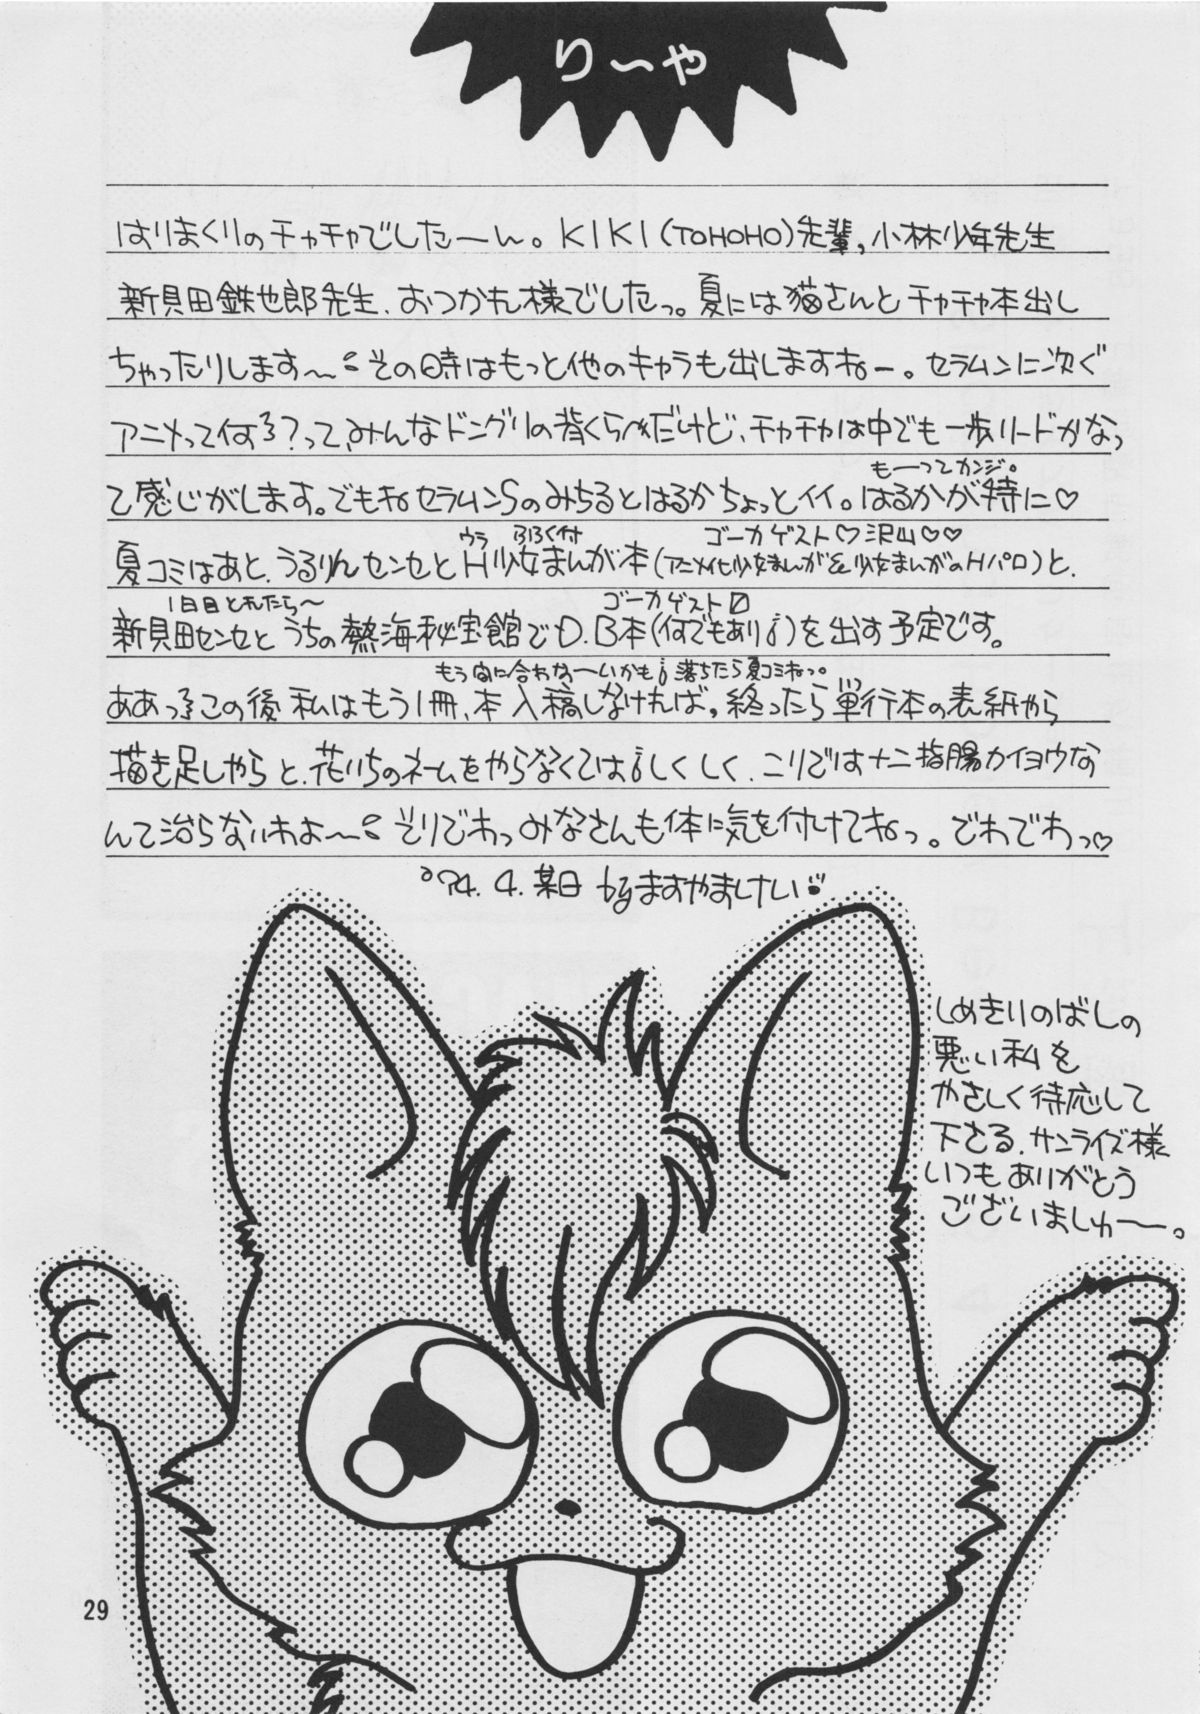 りーや
はりまくりのチャチャでしたーん。KIKI(TOHOHO)先輩,小林少年先生
新貝田鉄也郎先生、おつかれ様でしたっ。夏には猫さんとチャチャ本出し
ちゃったりします〜 その時はもっと他のキャラも出しますねー。セラムンに次ぐ
アニメって何ろ?って、みんなドングリの背くらべだけど、チャチャは中でも一歩リードかなっ
もーってカンジ。
て感じがします。でもねセラムンSのみちるとはるかちょっとイイ。はるかが特に♡
ウラ ふろく付 ゴーカゲスト♡沢山♡♡
夏コミはあと、うるりんセンセとH少女まんが本(アニメ化少女まんがと少女まんがのHパロ)と、
1日目とれたら〜 ゴーカゲスト
新貝田センセとうちの熱海秘宝館でD.B本(何でもあり)を出す予定です。
もう間に合わな〜いかも 落ちたら夏コミねっ。
ああっこの後私はもう1冊、本入稿しなければ,終ったら単行本の表紙やら
描き足しやらと、花いちのネームをやらなくては しくしく、こりでは十二指腸カイヨウな
んて治らないわよ〜 そりでわっみなさんも体に気を付けてねっ。でわでわっ♡
'94.4.某日 byますやましけい
しめきりのばしの
悪い私を
やさしく待応して
下さる、サンライズ様
いつもありがとう
ございましゅ〜。
29